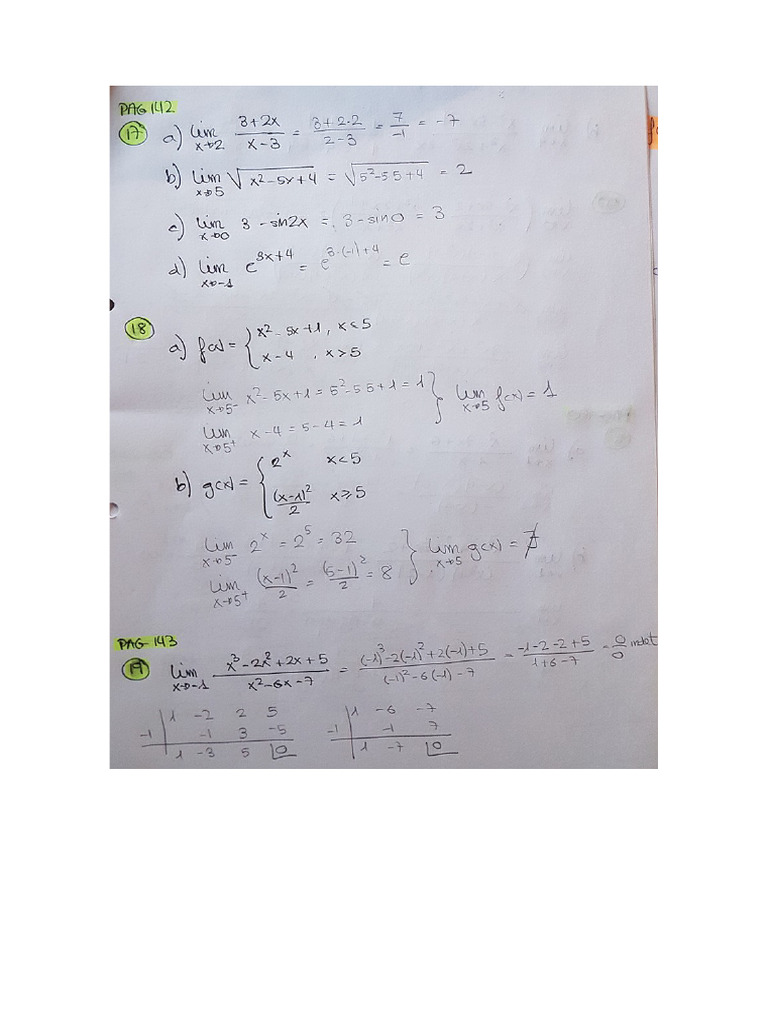 PAG 142
17 a) lim x→2 (3+2x)/(x-3) = (3+2·2)/(2-3) = 7/-1 = -7
b) lim x→5 √(x²-5x+4) = √(5²-5·5+4) = 2
c) lim x→0 3 - sin2x = 3 - sin0 = 3
d) lim x→-1 e^(3x+4) = e^(3·(-1)+4) = e
18
a) f(x) = { x²-5x+1, x≤5
x-4, x>5
lim x→5⁻ x²-5x+1 = 5²-5·5+1 = 1 } lim x→5 f(x) = 1
lim x→5⁺ x-4 = 5-4 = 1
b) g(x) = { 2^x x<5
(x-1)²/2 x≥5
lim x→5⁻ 2^x = 2^5 = 32 } lim x→5 g(x) = ∄
lim x→5⁺ (x-1)²/2 = (5-1)²/2 = 8
PAG-143
19 lim x→-1 (x³-2x²+2x+5)/(x²-6x-7) = ((-1)³-2(-1)²+2(-1)+5)/((-1)²-6(-1)-7) = (-1-2-2+5)/(1+6-7) = 0/0 indet
1 -2 2 5 1 -6 -7
-1 -1 3 -5 -1 -1 7
1 -3 5 0 1 -7 0